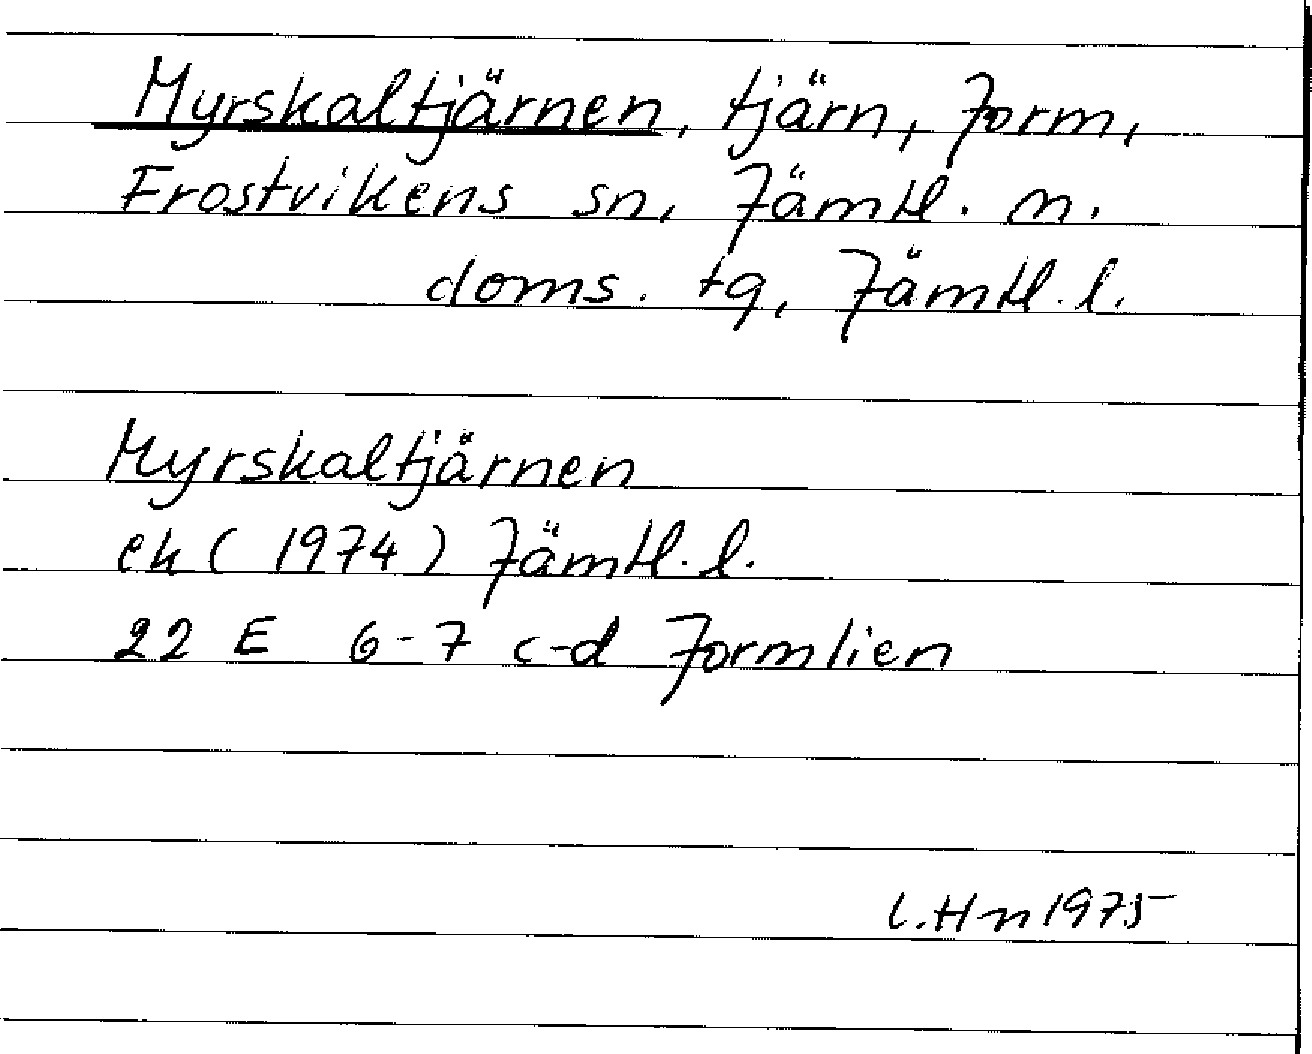 Myrskaltjärnen, tjärn, Jorm,
Frostvikens sn, Jämtl. n.
doms. tg, Jämtl. l.
Myrskaltjärnen
ek (1974) Jämtl. l.
22 E 6-7 c-d Jormlien
L.Hn 1975